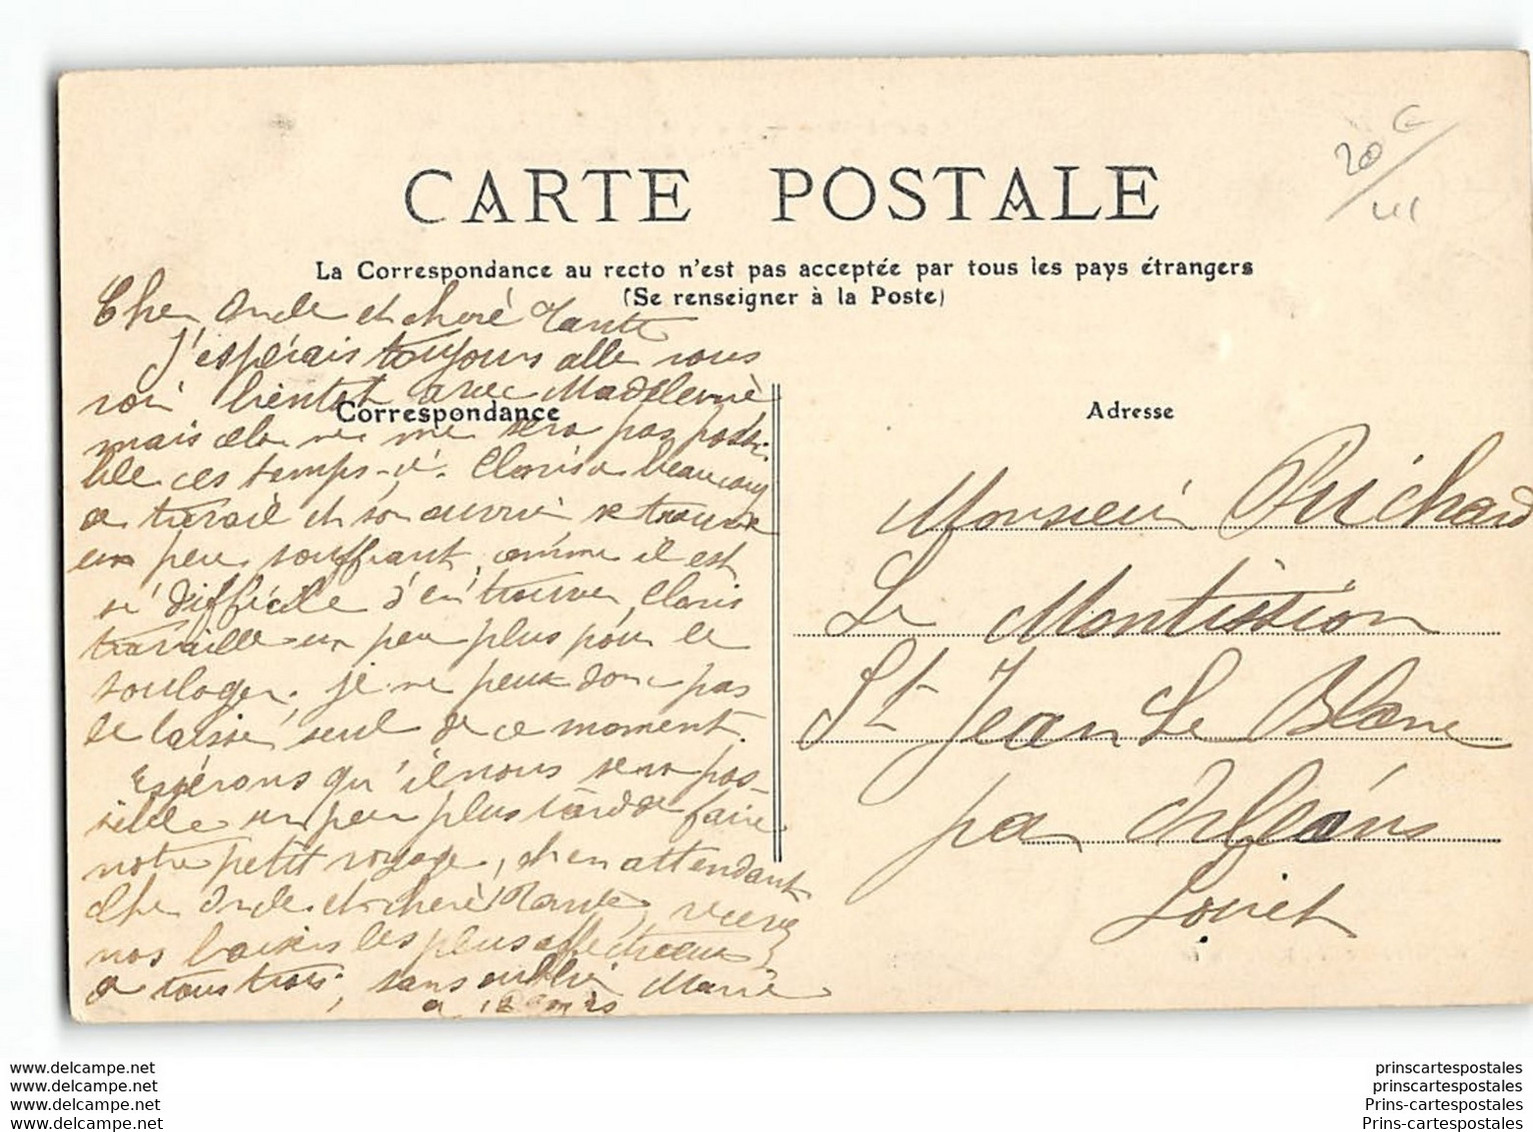 CARTE POSTALE
La Correspondance au recto n'est pas acceptée par tous les pays étrangers
(Se renseigner à la Poste)
20 €
Cher Oncle et cheré Tante
J'espérais toujours aller vous
voir bientot avec Madeleine
mais cela ne me sera pas possi-
ble ces temps-ci. Cloris a beaucoup
a travail et son ouvrier se trouve
un peu souffrant, comme il est
si difficile d'en trouver, Cloris
travaille un peu plus pour le
soulager, je ne peux donc pas
le laisser seul de ce moment.
Espérons qu'il nous sera pos-
sible un peu plus tard de faire
notre petit voyage, et en attendant
cher Oncle et cheré Tante, recevez
nos baisers les plus affectueux
a tous trois, sans oublier Marie
Correspondance
Adresse
Monsieur Richard
Le Montission
St Jean Le Blanc
par Orléans
Loiret
www.delcampe.net
www.delcampe.net
www.delcampe.net
www.delcampe.net
prinscartespostales
prinscartespostales
Prins-cartespostales
Prins-cartespostales